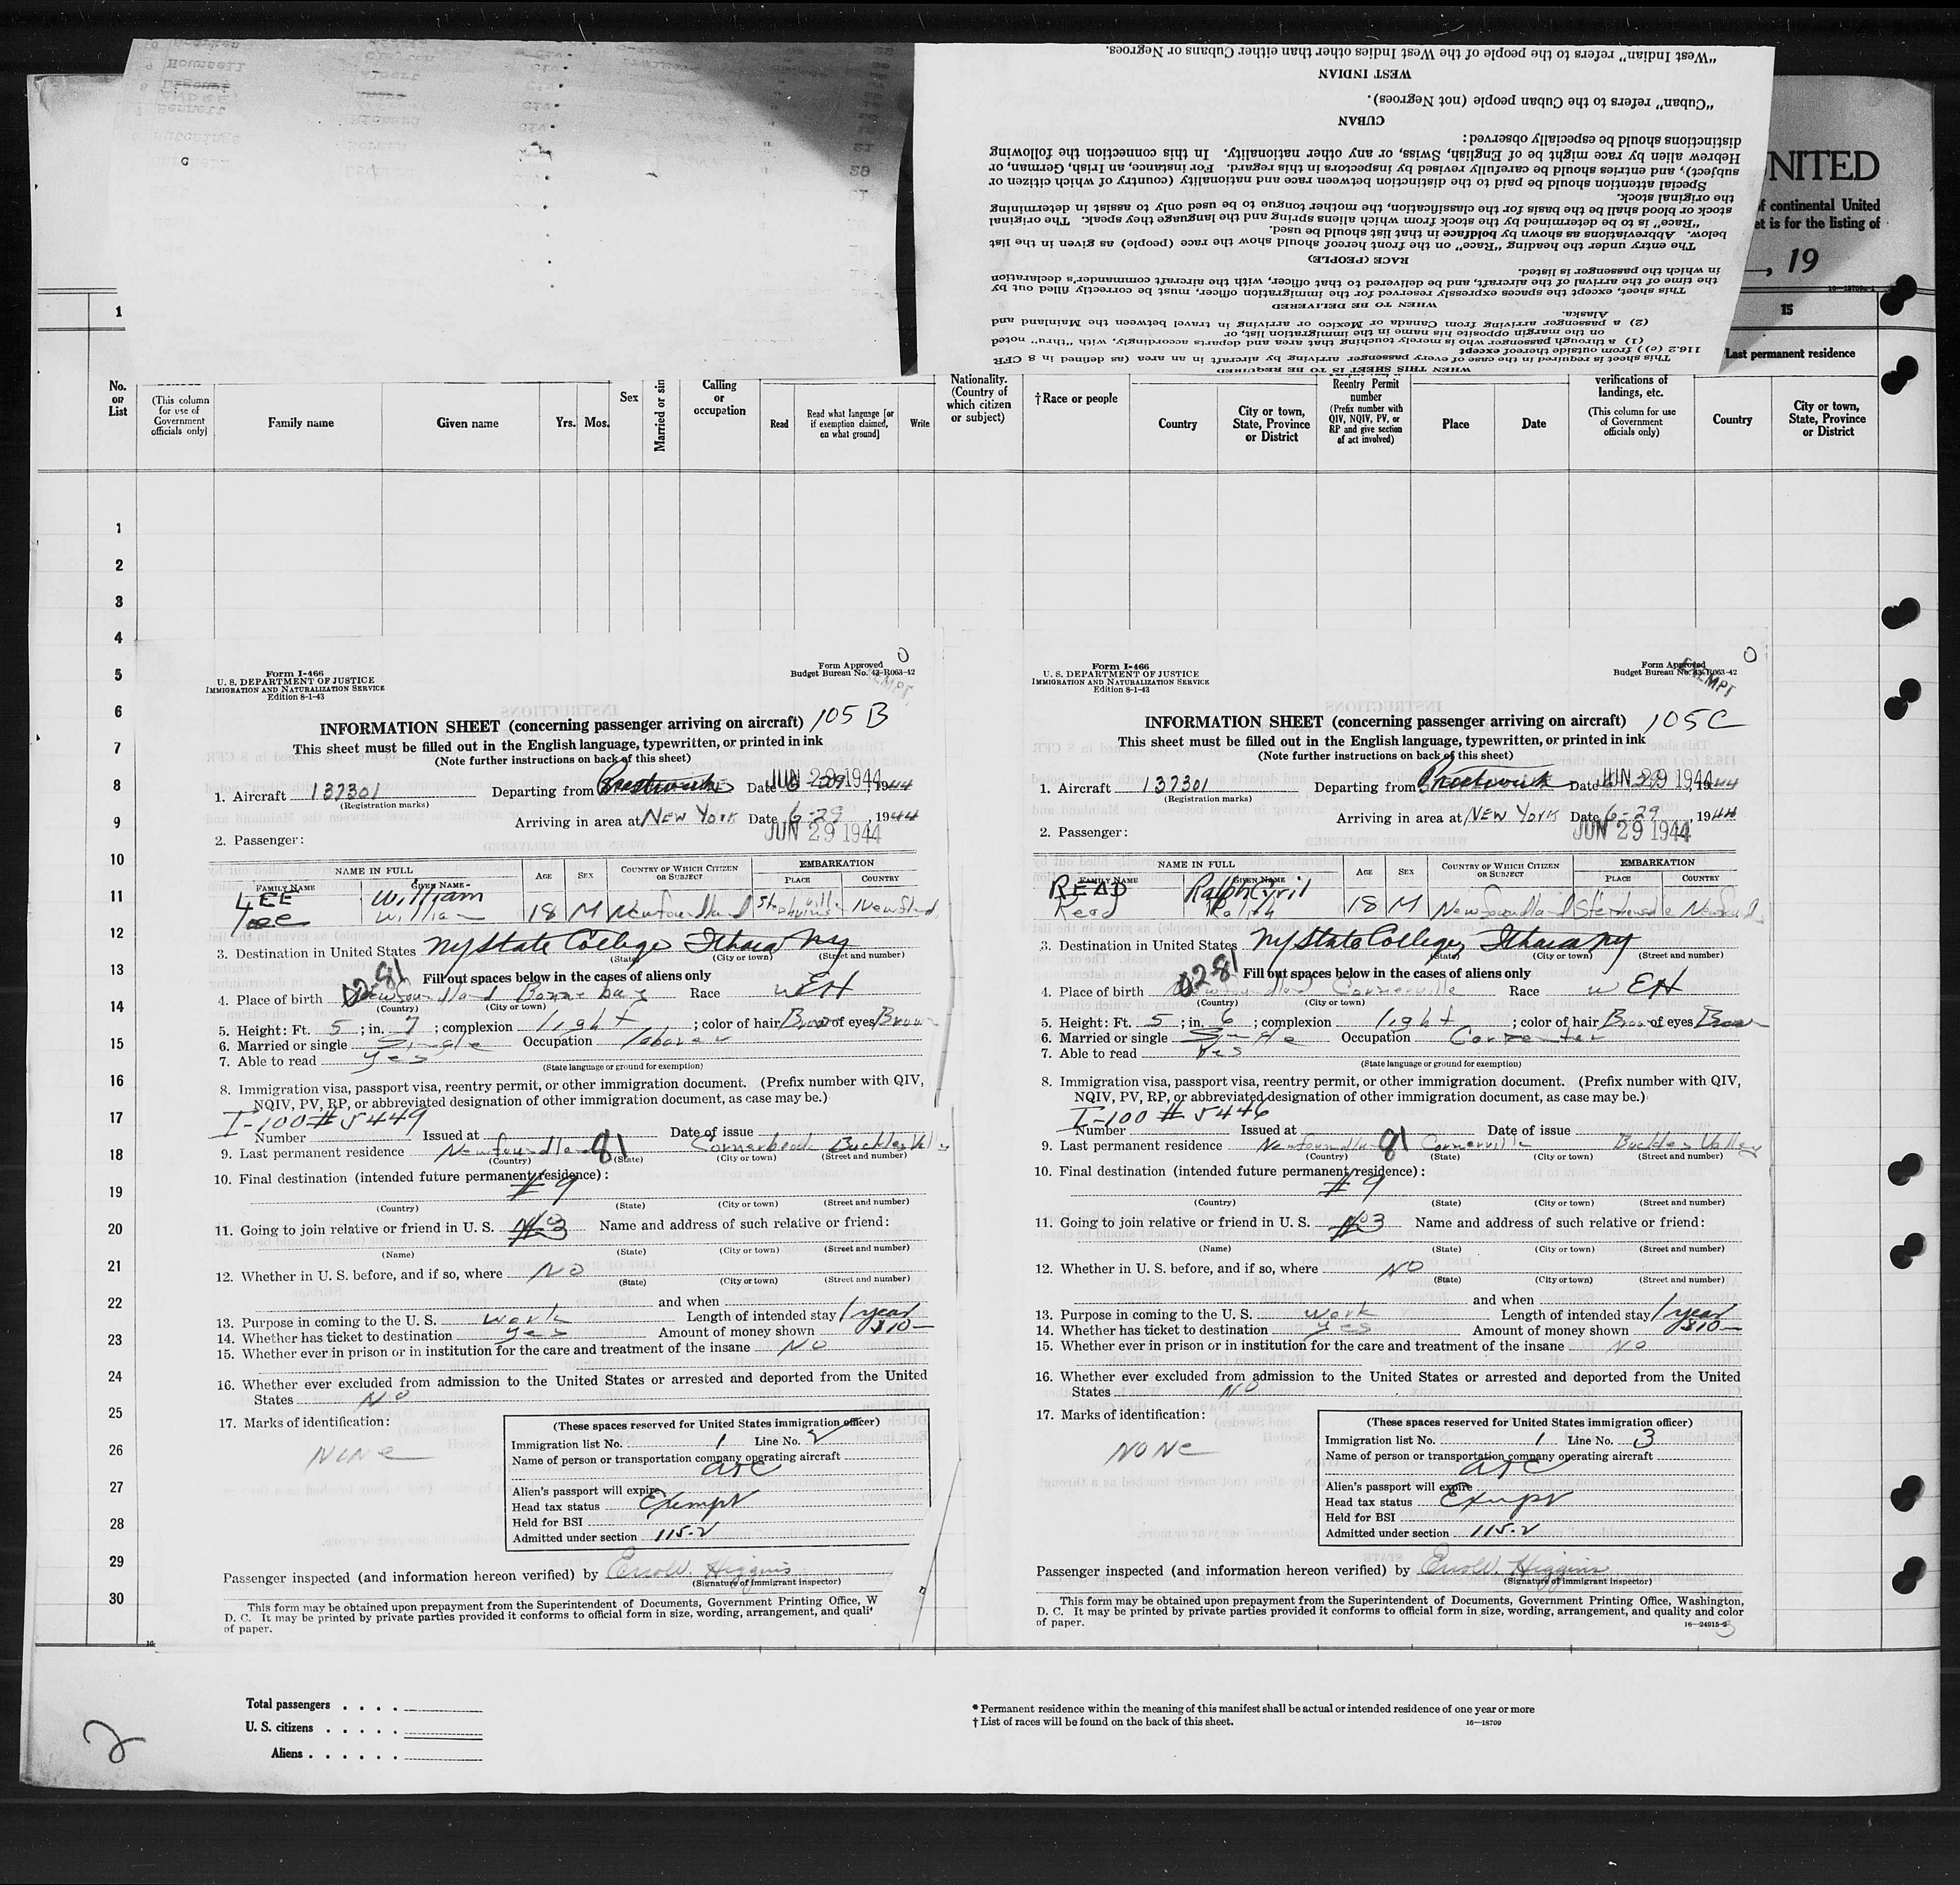 "West Indian" refers to the people of the West Indies other than either Cubans or Negroes.
WEST INDIAN
"Cuban" refers to the Cuban people (not Negroes).
CUBAN
distinctions should be especially observed:
Hebrew alien by race might be of English, Swiss, or any other nationality. In this connection the following
subject), and entries should be carefully revised by inspectors in this regard. For instance, an Irish, German, or
Special attention should be paid to the distinction between race and nationality (country of which citizen or
the original stock.
stock or blood shall be the basis for the classification, the mother tongue to be used only to assist in determining
"Race" is to be determined by the stock from which aliens spring and the language they speak. The original
below. Abbreviations as shown by boldface in that list should be used.
The entry under the heading "Race" on the front hereof should show the race (people) as given in the list
RACE (PEOPLE)
in which the passenger is listed.
the time of the arrival of the aircraft, and be delivered to that officer, with the aircraft commander's declaration
This sheet, except the spaces expressly reserved for the immigration officer, must be correctly filled out by
WHEN TO BE DELIVERED
Alaska.
(2) a passenger arriving from Canada or Mexico or arriving in travel between the Mainland and
on the margin opposite his name in the immigration list, or
(1) a through passenger who is merely touching that area and departs accordingly, with "thru" noted
116.2 (c)) from outside thereof except
This sheet is required in the case of every passenger arriving by aircraft in an area (as defined in 8 CFR
WHEN THIS SHEET IS TO BE REQUIRED
NITED
f continental United
et is for the listing of
, 19
1
15
Last permanent residence
No. on List
(This column for use of Government officials only)
Family name
Given name
Yrs.
Mos.
Sex
Married or sin
Calling or occupation
Read
Read what language [or if exemption claimed, on what ground]
Write
Nationality. (Country of which citizen or subject)
† Race or people
Country
City or town, State, Province or District
Reentry Permit number
(Prefix number with QIV, NQIV, PV, or RP and give section of act involved)
Place
Date
verifications of landings, etc.
(This column for use of Government officials only)
Country
City or town, State, Province or District
1
2
3
4
5
6
7
8
9
10
11
12
13
14
15
16
17
18
19
20
21
22
23
24
25
26
27
28
29
30
Form I-466
U. S. DEPARTMENT OF JUSTICE
IMMIGRATION AND NATURALIZATION SERVICE
Edition 8-1-43
0
Form Approved
Budget Bureau No. 43-R063-42
EMPT
INFORMATION SHEET (concerning passenger arriving on aircraft) 105 B
This sheet must be filled out in the English language, typewritten, or printed in ink
(Note further instructions on back of this sheet)
1. Aircraft 137301 Departing from Date JUN 29 1944
(Registration marks)
Arriving in area at NEW YORK Date 6-29, 1944
JUN 29 1944
2. Passenger:
NAME IN FULL
FAMILY NAME
GIVEN NAME
AGE
SEX
COUNTRY OF WHICH CITIZEN OR SUBJECT
EMBARKATION
PLACE
COUNTRY
LEE William
Lee William 18 M Newfoundland
3. Destination in United States NY State College Ithaca NY
(State) (City or town) (Street and number)
Fill out spaces below in the cases of aliens only
4. Place of birth Newfoundland Bonne bay Race w EH
(Country) (City or town)
5. Height: Ft. 5; in. 7; complexion light; color of hair Brown of eyes Brown
6. Married or single Single Occupation laborer
7. Able to read yes
(State language or ground for exemption)
8. Immigration visa, passport visa, reentry permit, or other immigration document. (Prefix number with QIV,
NQIV, PV, RP, or abbreviated designation of other immigration document, as case may be.)
I-100 # 5449
Number Issued at Date of issue
9. Last permanent residence Newfoundland 81 Cornerbrook Buckles Valley
(Country) (State) (City or town) (Street and number)
10. Final destination (intended future permanent residence):
# 9
(Country) (State) (City or town) (Street and number)
11. Going to join relative or friend in U. S. #3 Name and address of such relative or friend:
(Name) (State) (City or town) (Street and number)
12. Whether in U. S. before, and if so, where No
(State) (City or town) (Street and number)
and when
13. Purpose in coming to the U. S. work Length of intended stay 1 year
14. Whether has ticket to destination yes Amount of money shown $10—
15. Whether ever in prison or in institution for the care and treatment of the insane No
16. Whether ever excluded from admission to the United States or arrested and deported from the United
States No
17. Marks of identification:
NONE
(These spaces reserved for United States immigration officer)
Immigration list No. 1 Line No. 2
Name of person or transportation company operating aircraft
atc
Alien's passport will expire
Head tax status Exempt
Held for BSI
Admitted under section 115.2
Passenger inspected (and information hereon verified) by Errol W. Higgins
(Signature of immigrant inspector)
This form may be obtained upon prepayment from the Superintendent of Documents, Government Printing Office, W
D. C. It may be printed by private parties provided it conforms to official form in size, wording, arrangement, and quali
of paper.
Form I-466
U. S. DEPARTMENT OF JUSTICE
IMMIGRATION AND NATURALIZATION SERVICE
Edition 8-1-43
0
Form Approved
Budget Bureau No. 43-R063-42
EMPT
INFORMATION SHEET (concerning passenger arriving on aircraft) 105C
This sheet must be filled out in the English language, typewritten, or printed in ink
(Note further instructions on back of this sheet)
1. Aircraft 137301 Departing from Date JUN 29 1944
(Registration marks)
Arriving in area at NEW YORK Date 6-29, 1944
JUN 29 1944
2. Passenger:
NAME IN FULL
FAMILY NAME
GIVEN NAME
AGE
SEX
COUNTRY OF WHICH CITIZEN OR SUBJECT
EMBARKATION
PLACE
COUNTRY
READ Ralph Cyril
Read Ralph 18 M Newfoundland
3. Destination in United States NY State College, Ithaca NY
(State) (City or town) (Street and number)
Fill out spaces below in the cases of aliens only
4. Place of birth Newfoundland Cornerville Race w EH
(Country) (City or town)
5. Height: Ft. 5; in. 6; complexion light; color of hair Brown of eyes Brown
6. Married or single Single Occupation Carpenter
7. Able to read Yes
(State language or ground for exemption)
8. Immigration visa, passport visa, reentry permit, or other immigration document. (Prefix number with QIV,
NQIV, PV, RP, or abbreviated designation of other immigration document, as case may be.)
I-100 # 5446
Number Issued at Date of issue
9. Last permanent residence Newfoundland 81 Cornerville Buckles Valley
(Country) (State) (City or town) (Street and number)
10. Final destination (intended future permanent residence):
# 9
(Country) (State) (City or town) (Street and number)
11. Going to join relative or friend in U. S. #3 Name and address of such relative or friend:
(Name) (State) (City or town) (Street and number)
12. Whether in U. S. before, and if so, where NO
(State) (City or town) (Street and number)
and when
13. Purpose in coming to the U. S. work Length of intended stay 1 year
14. Whether has ticket to destination yes Amount of money shown $10—
15. Whether ever in prison or in institution for the care and treatment of the insane No
16. Whether ever excluded from admission to the United States or arrested and deported from the United
States NO
17. Marks of identification:
NONE
(These spaces reserved for United States immigration officer)
Immigration list No. 1 Line No. 3
Name of person or transportation company operating aircraft
atc
Alien's passport will expire
Head tax status Exempt
Held for BSI
Admitted under section 115.2
Passenger inspected (and information hereon verified) by Errol W. Higgins
(Signature of immigrant inspector)
This form may be obtained upon prepayment from the Superintendent of Documents, Government Printing Office, Washington,
D. C. It may be printed by private parties provided it conforms to official form in size, wording, arrangement, and quality and color
of paper.
16—24915-2
Total passengers . . . .
U. S. citizens . . . . .
Aliens . . . . . .
2
* Permanent residence within the meaning of this manifest shall be actual or intended residence of one year or more
† List of races will be found on the back of this sheet.
16—18709